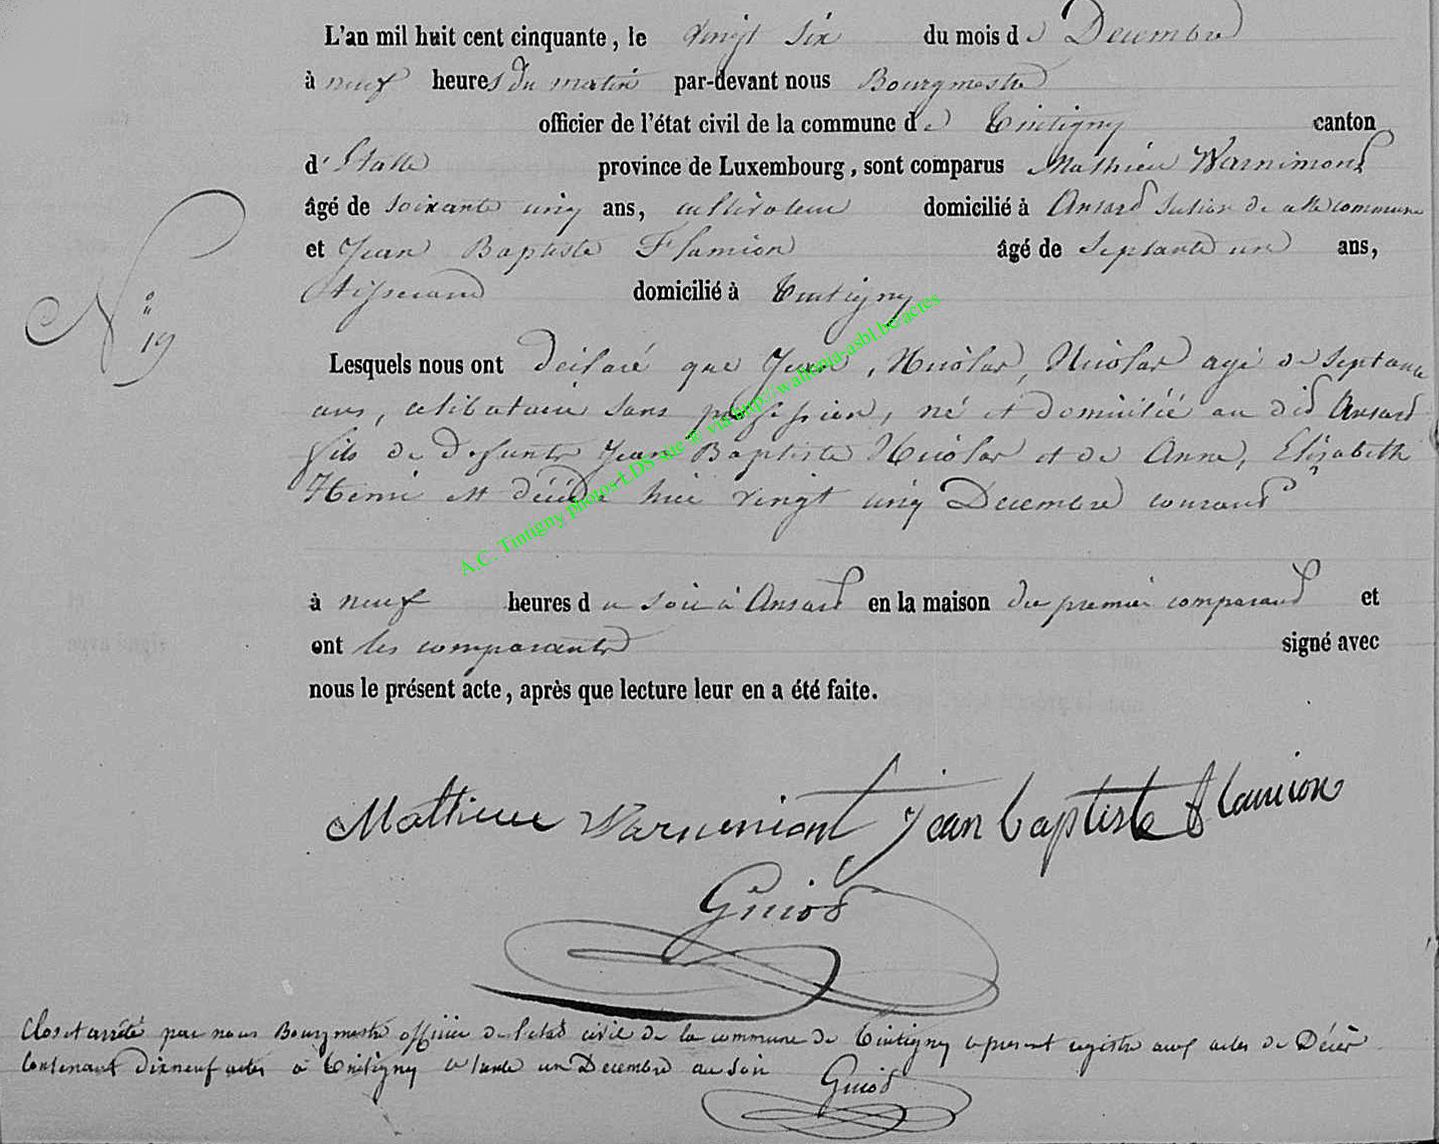 L'an mil huit cent cinquante, le vingt six du mois de Decembre
à neuf heures du matin par-devant nous Bourgmestre
officier de l'état civil de la commune de Tintigny canton
d'Etalle province de Luxembourg, sont comparus Mathieu Warnimont
âgé de soixante cinq ans, cultivateur domicilié à Ansart section de cette commune
et Jean Baptiste Flamion âgé de septante un ans,
tisserand domicilié à Tintigny
N° 19
Lesquels nous ont déclaré que Jean, Nicolas, Nicolas agé de septante
ans, celibataire sans profession, né et domicilié au dit Ansart
fils de defunts Jean Baptiste Nicolas et de Anne, Elisabeth
Henri est décédé hier vingt cinq Decembre courant
à neuf heures du soir à Ansart en la maison du premier comparant et
ont les comparants signé avec
nous le présent acte, après que lecture leur en a été faite.
Mathieu Warnimont Jean baptiste flamion
Guiot
Clos et arrêté par nous Bourgmestre officier de l'etat civil de la commune de Tintigny le present registre aux actes de Décès
Contenant dixneuf actes à Tintigny le trente un Decembre au soir Guiot
A.C. Tintigny photos LDS sur @ via http://wallonia-asbl.be/actes